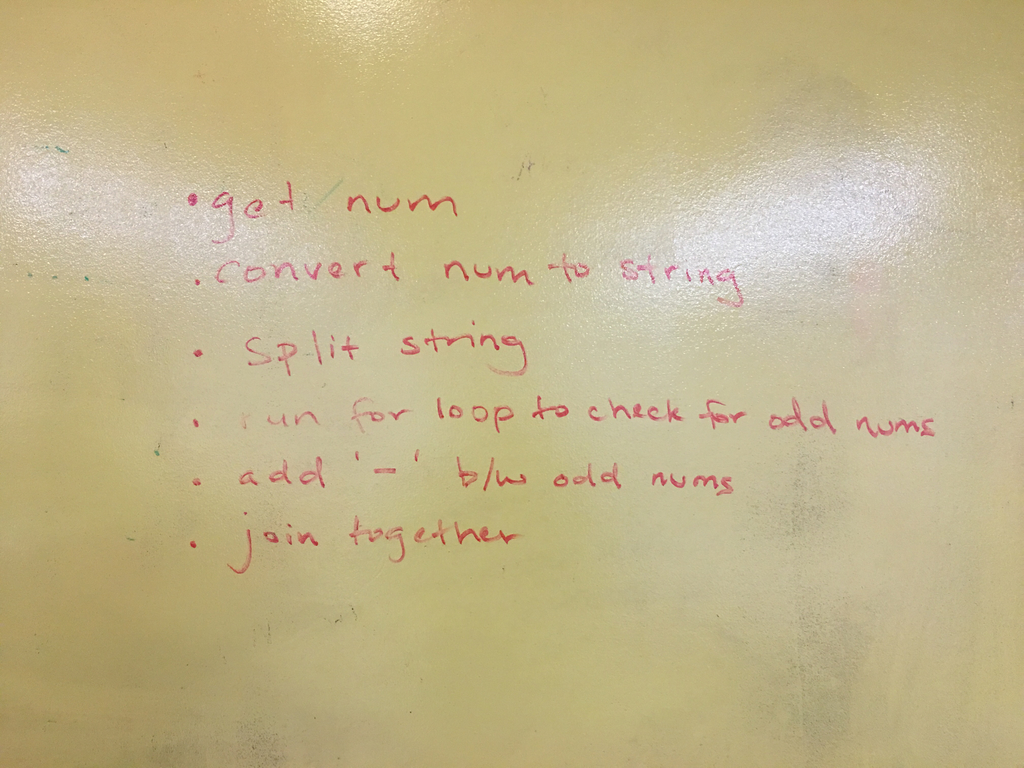 • get num
• convert num to string
• split string
• run for loop to check for odd nums
• add '-' b/w odd nums
• join together